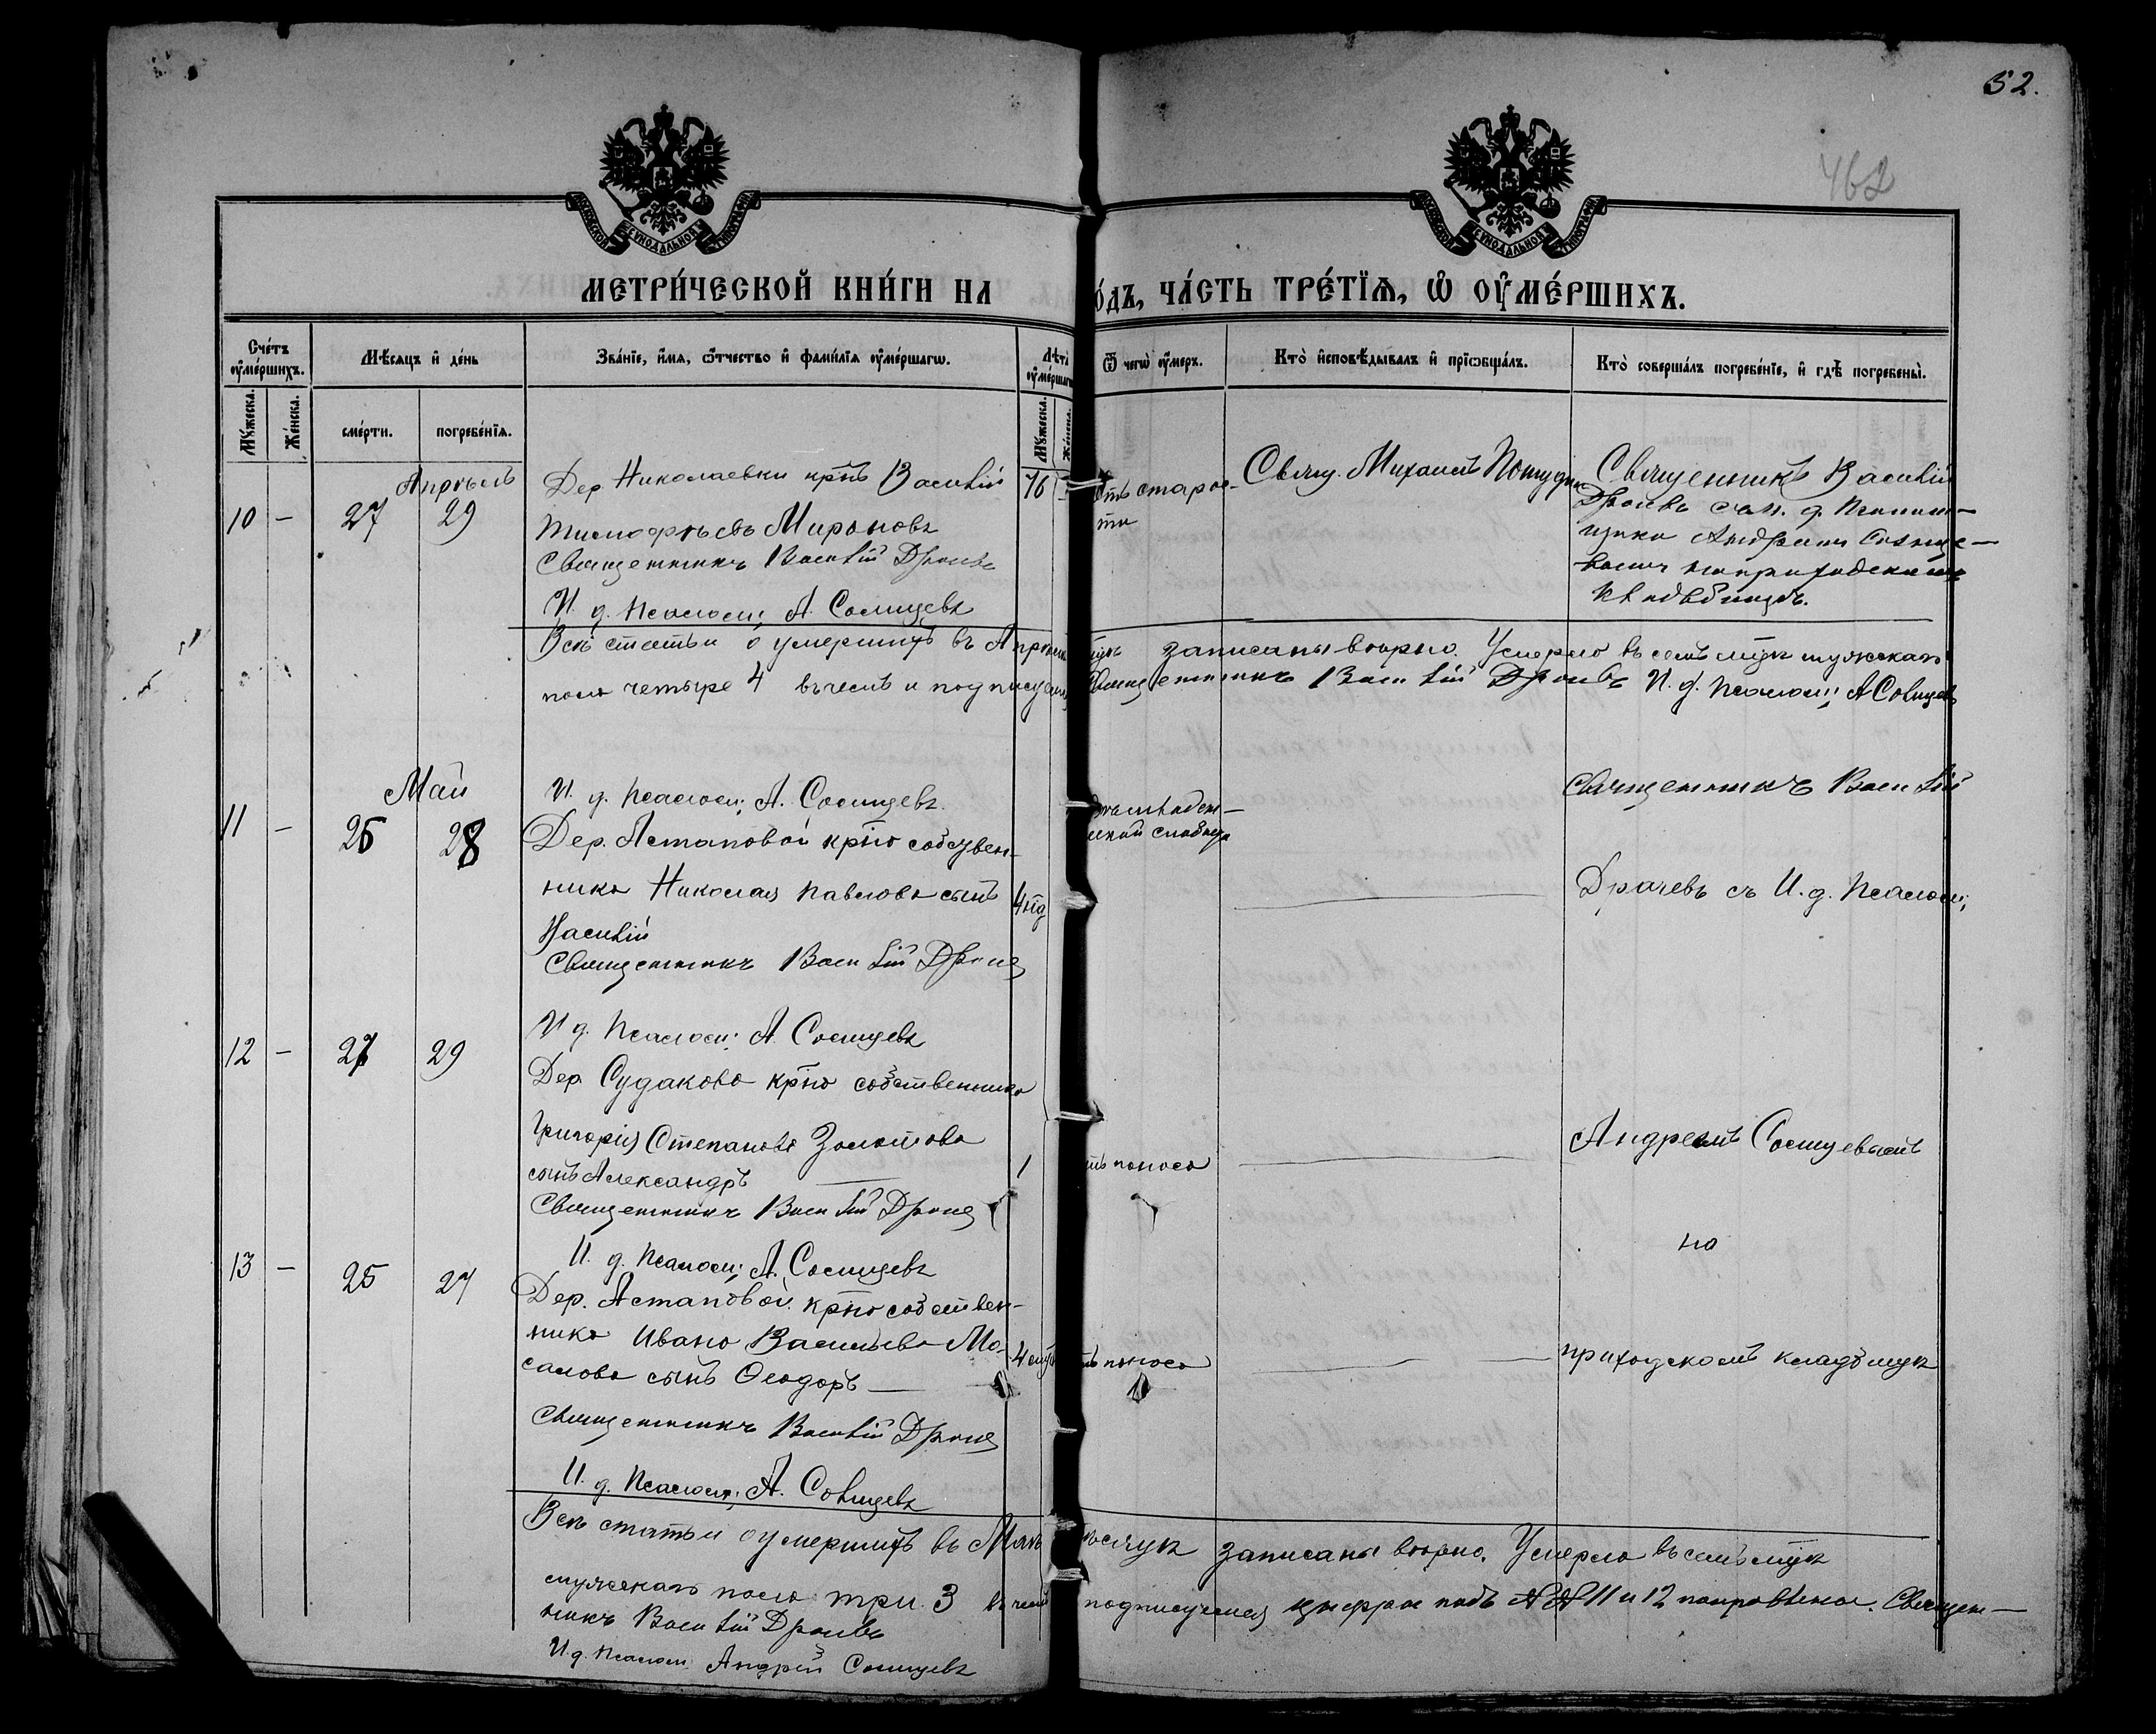 52.
462
МЕТРИ́ЧЕСКОЙ КНИ́ГИ НА
О́ДЪ, ЧА́СТЬ ТРЕ́ТЇѦ, Ѡ ОУ҆МЕ́РШИХЪ.
Сче́тъ оу҆ме́ршихъ.
Мѣ́сяцъ и҆ де́нь
Зва́нїе, и҆́мя, ѻ҆́тчество и҆ фами́лїя оу҆ме́ршагѡ.
Лѣта̀ оу҆ме́ршаг
Ѿ чегѡ̀ оу҆́меръ.
Кто̀ и҆сповѣ́дывалъ и҆ прїѡбща́лъ.
Кто̀ соверша́лъ погребе́нїе, и҆ гдѣ̀ погребены̀.
Мꙋ́жеска.
Же́нска.
сме́рти.
погребе́нїя.
Мꙋ́жеска.
Же́нска.
Апрѣль
10 – 27 29
Дер. Николаевки крнъ Василій
Тимофѣевъ Мироновъ
Священникъ Василій Драчевъ
И. д. Псалом; А. Солнцевъ
76
старос-
ти
Свящ. Михаилъ
Священникъ Василій
Драчевъ съ И. д. Псалом-
щика Андреемъ Солнце-
вымъ на приходскомъ
кладбищѣ.
Всѣ статьи о умершихъ въ Апрѣлѣ
записаны вѣрно. Умерло въ семъ мцѣ мужскаго
пола четыре 4 въ чемъ и подписуемся
Священникъ Василій Драчевъ И. д. Псалом; А Солнцевъ
Май
11 – 26 28
И. д. Псалом; А. Солнцевъ
Дер. Астаповой крнъ собствен-
ника Николая Павлова сынъ
Василій
Священникъ Василій Драчев
4 нд
слабости
Священникъ Василій
Драчевъ съ И. д. Псалом;
12 – 27 29
И д. Псалом; А. Солнцевъ
Дер. Судаково крнъ собственника
Григорія Степанова Золотова
сынъ Александръ
Священникъ Василій Драчев
1
поноса
Андреемъ Солнцевымъ
на
13 – 25 27
И. д. Псалом; А. Солнцевъ
Дер. Астаповой крнъ собствен-
ника Ивана Васильева Мо-
салова сынъ Ѳеодоръ
Священникъ Василій Драчев
И. д. Псалом; А. Солнцевъ
4 мц
поноса
приходскомъ кладбищѣ
Всѣ статьи о умершихъ въ Маѣ
мѣсяцѣ записаны вѣрно. Умерло въ семъ мцѣ
мужскаго пола три 3 въ чемъ
подписуемся цифры подъ №№ 11 и 12 поправлены. Священ-
никъ Василій Драчевъ
И. д. Псалом Андрей Солнцевъ